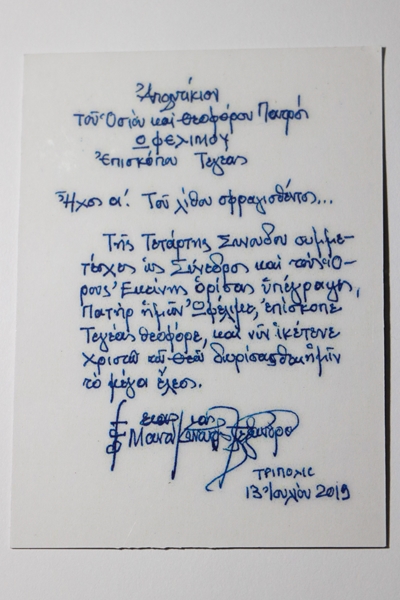 Ἀπολυτίκιον
τοῦ Ὁσίου καὶ Θεοφόρου Πατρὸς
Ὠφελίμου
Ἐπισκόπου Τεγέας
Ἦχος α΄. Τοῦ λίθου σφραγισθέντος...
Τῆς Τετάρτης Συνόδου συμμε-
τέσχες ὡς Σύνεδρος καὶ τοὺς Ὅ-
ρους Ἐκείνης ὁρίσας ὑπέγραψες,
Πατὴρ ἡμῶν Ὠφέλιμε, ἐπίσκοπε
Τεγέας θεοφόρε, καὶ νῦν ἱκέτευε
Χριστῷ τῷ Θεῷ ἡμῖν
τὸ μέγα ἔλεος.
ΤΡΙΠΟΛΙΣ
13 Ἰουλίου 2019